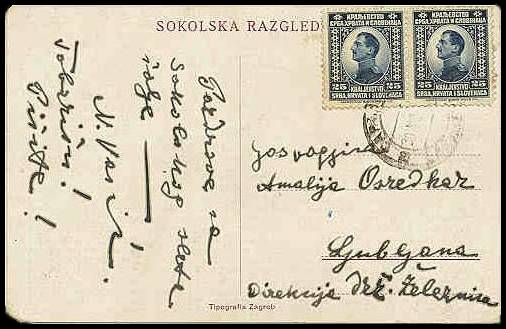 SOKOLSKA RAZGLED
КРАЉЕВСТВО
СРБА, ХРВАТА И СЛОВЕНАЦА
25 25
KRALJEVSTVO
SRBA, HRVATA I SLOVENACA
КРАЉЕВСТВО
СРБА, ХРВАТА И СЛОВЕНАЦА
25 25
KRALJEVSTVO
SRBA, HRVATA I SLOVENACA
Pozdrave sa
Sokolskog sleta
šalje
N. Vasić
Pišite!
Gospodjica
Amalija Osredkar
Ljubljana
Direkcija drž. železnica
Tipografia Zagreb